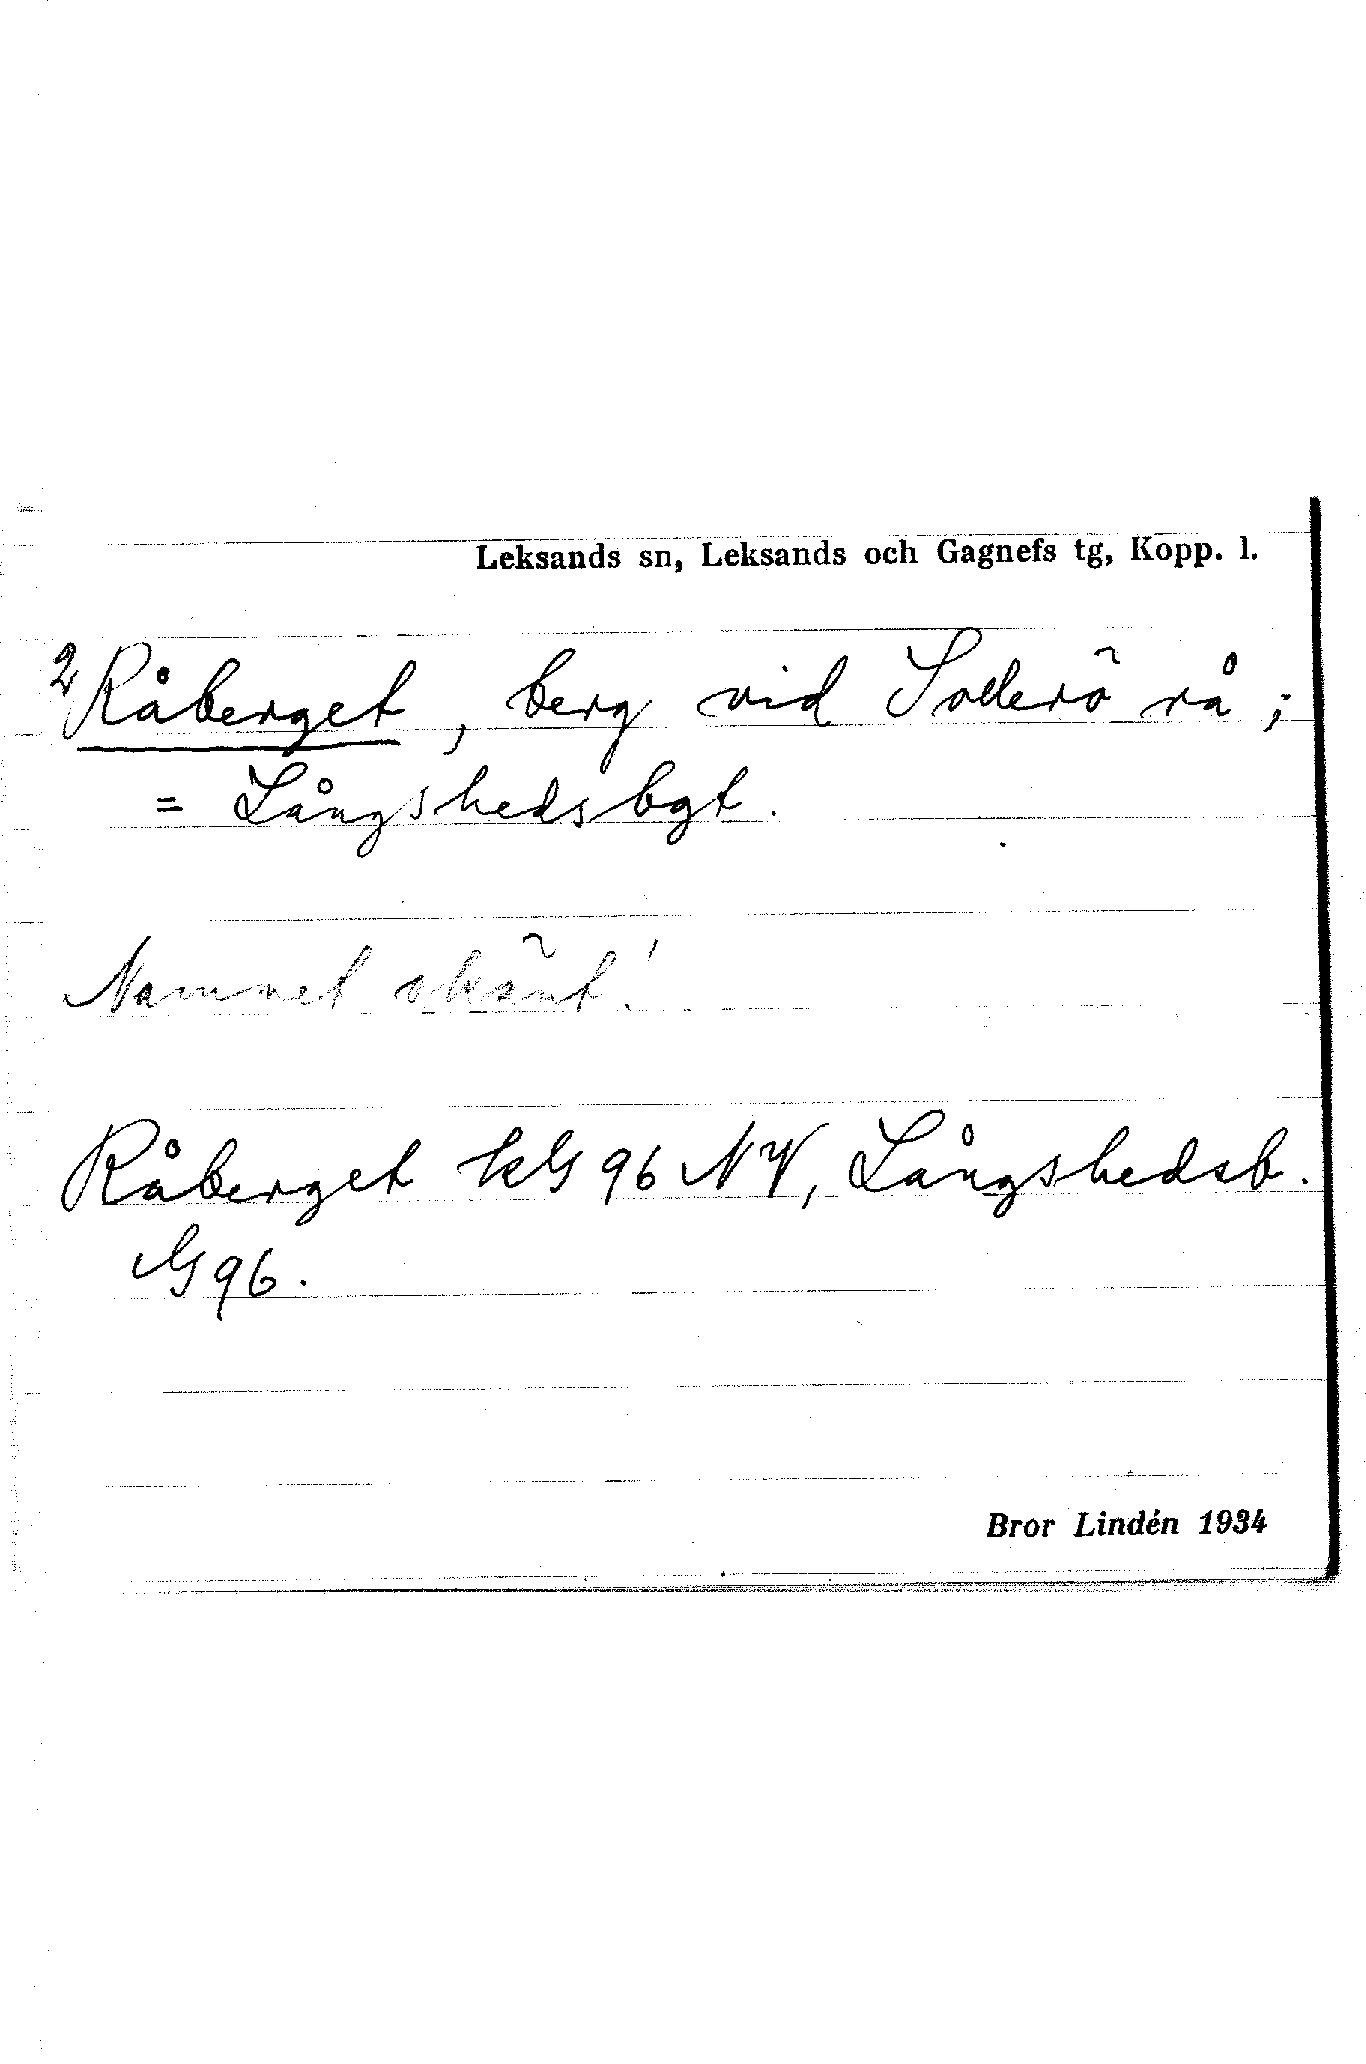 Leksands sn, Leksands och Gagnefs tg, Kopp. l.
2 Råberget, berg vid Sollerö rå;
= Långshedsbgt.
Namnet okänt!
Råberget kG 96 NV, Långshedsb.
G 96.
Bror Lindén 1934